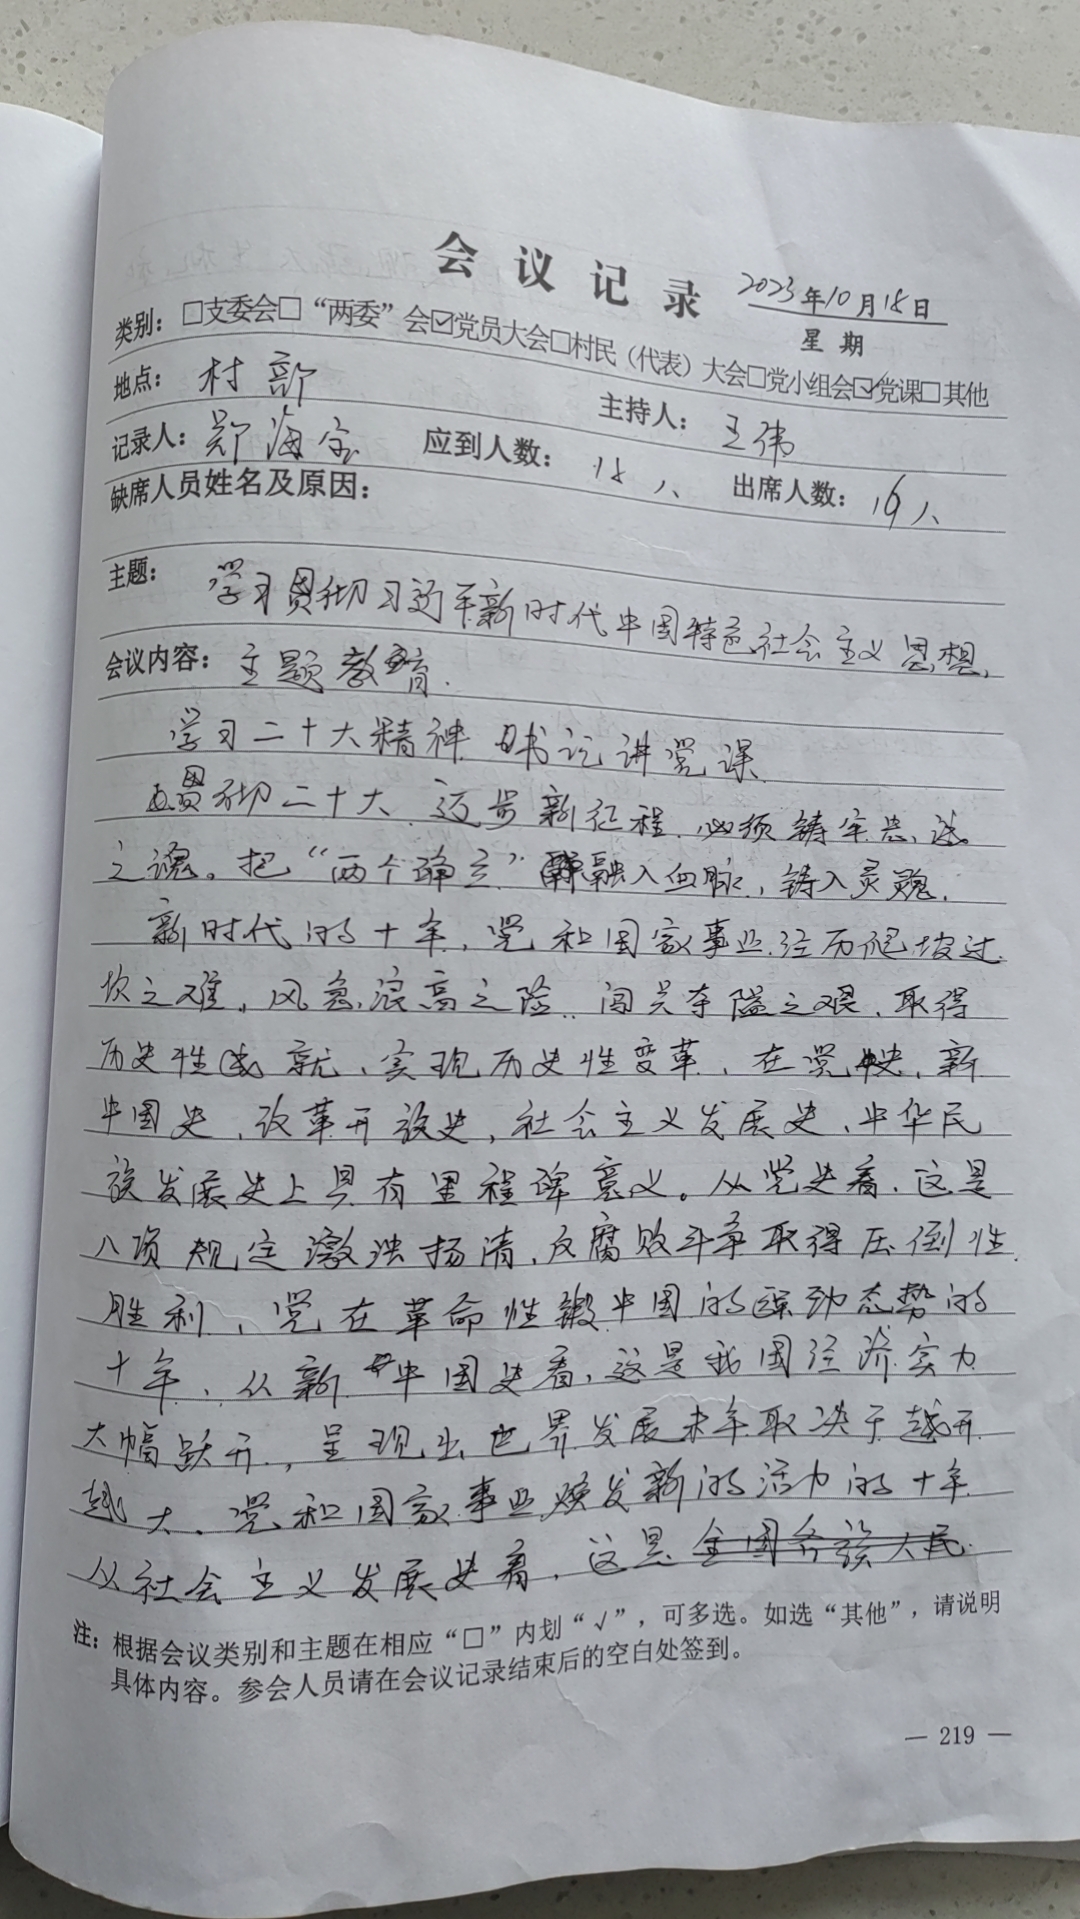 会议记录
2023年10月18日
星期
类别：□支委会□“两委”会☑党员大会□村民（代表）大会□党小组会☑党课□其他
地点：村部 主持人：王伟
记录人：郑海宝 应到人数：18人 出席人数：16人
缺席人员姓名及原因：
主题：学习贯彻习近平新时代中国特色社会主义思想，
会议内容：主题教育.
学习二十大精神 书记讲党课
贯彻二十大，迈步新征程，必须铸牢忠诚
之魂。把“两个确立”融入血脉，铸入灵魂.
新时代的十年，党和国家事业经历爬坡过
坎之难，风急浪高之险，闯关夺隘之艰，取得
历史性成就、实现历史性变革，在党史、新
中国史、改革开放史，社会主义发展史、中华民
族发展史上具有里程碑意义。从党史看，这是
八项规定激浊扬清，反腐败斗争取得压倒性
胜利，党在革命性锻中国的态势的
十年，从新中国史看，这是我国经济实力
大幅跃升，呈现出世界发展未来取决于越开
越大、党和国家事业焕发新的活力的十年
从社会主义发展史看，这是全国各族人民
注：根据会议类别和主题在相应“□”内划“√”，可多选。如选“其他”，请说明
具体内容。参会人员请在会议记录结束后的空白处签到。
— 219 —